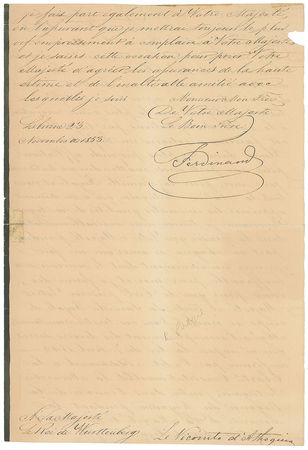 je fais part également à Votre Majesté,
en l'assurant que je mettrai toujours le plus
vif empressement à complaire à Votre Majesté
et je saisis cette occasion pour prier Votre
Majesté d'agréer les assurances de la haute
estime et de l'inaltérable amitié avec
lesquelles je suis
Monsieur Mon Frère
De Votre Majesté
Le Bon Frère
Lisbonne 23
Novembre 1853
Ferdinand
A Sa Majesté
Le Roi de Württemberg
Le Vicomte d'Athoguia